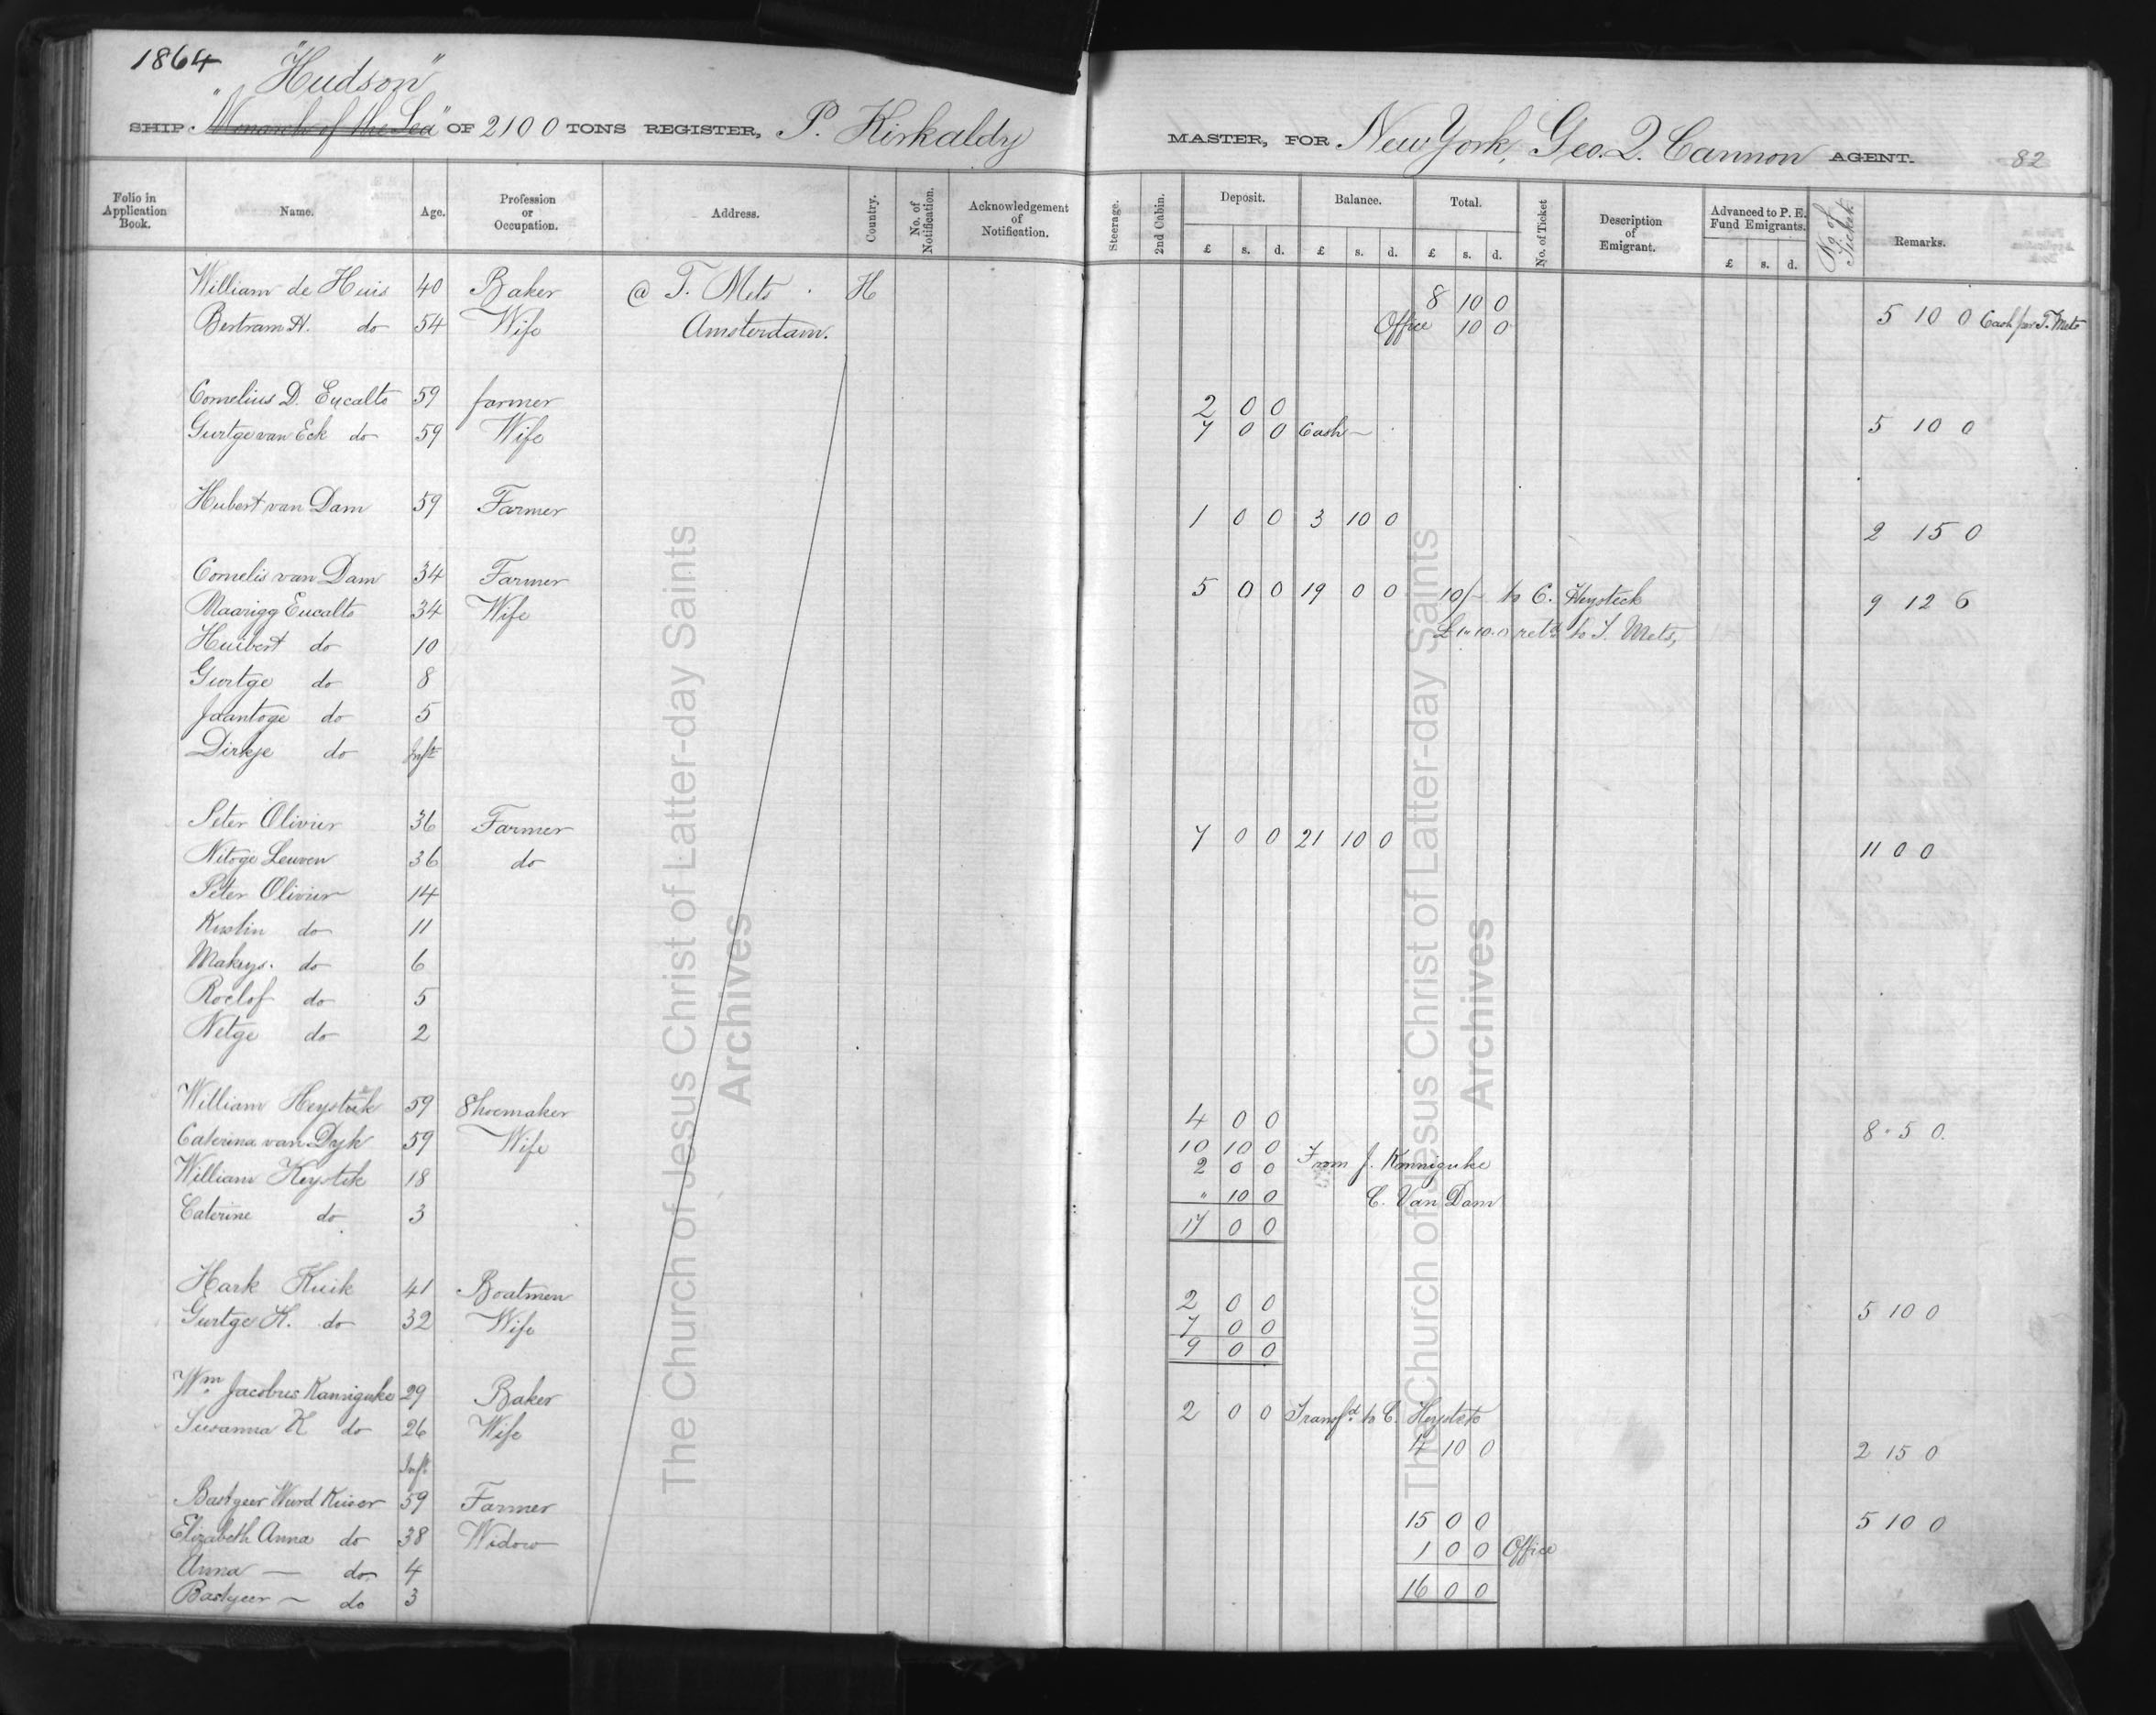 1864
"Hudson"
SHIP "Monarch of the Sea" OF 2100 TONS REGISTER, P. Kirkaldy MASTER, FOR New York, Geo. Q. Cannon AGENT. 82
Folio in Application Book. Name. Age. Profession or Occupation. Address. Country. No. of Notification. Acknowledgement of Notification. Steerage. 2nd Cabin. Deposit. Balance. Total. No. of Ticket Description of Emigrant. Advanced to P. E. Fund Emigrants. Ticket Remarks.
£ s. d. £ s. d. £ s. d. £ s. d.
William de Huis 40 Baker @ T. Mets H 8 10 0
Bertram H. do 54 Wife Amsterdam. Office 10 0 5 10 0 Cash per T. Mets
Cornelius D. Eycalto 59 farmer 2 0 0
Gurtge van Eck do 59 Wife 7 0 0 Cash — 5 10 0
Hubert van Dam 59 Farmer 1 0 0 3 10 0 2 15 0
Cornelis van Dam 34 Farmer 5 0 0 19 0 0 10/- to C. Heysteck 9 12 6
Maarigg Eucalto 34 Wife £1.10.0 retd to T. Mets,
Huibert do 10
Gurtge do 8
Jaantoge do 5
Dirkje do Inft
Peter Olivier 36 Farmer 7 0 0 21 10 0 11 0 0
Nitoge Leuven 36 do
Peter Olivier 14
Kustin do 11
Makys. do 6
Roelof do 5
Netge do 2
William Heystek 59 Shoemaker 4 0 0 8 5 0
Caterina van Dyk 59 Wife 10 10 0
William Heystek 18 2 0 0 From J. Kanniguke
" 10 0 C. Van Dam
Caterine do 3 17 0 0
Hark Kuik 41 Boatmen 2 0 0 5 10 0
Gurtge H. do 32 Wife 7 0 0
9 0 0
Wm Jacobus Kanniguke 29 Baker 2 0 0 Transfd to C. Heystek
Susanna K do 26 Wife 4 10 0 2 15 0
Inft
Bastyeer Wurd Kuiser 59 Farmer 15 0 0 5 10 0
Elizabeth Anna do 38 Widow 1 0 0 Office
Anna — do 4 16 0 0
Bastyeer — do 3
The Church of Jesus Christ of Latter-day Saints
Archives
The Church of Jesus Christ of Latter-day Saints
Archives